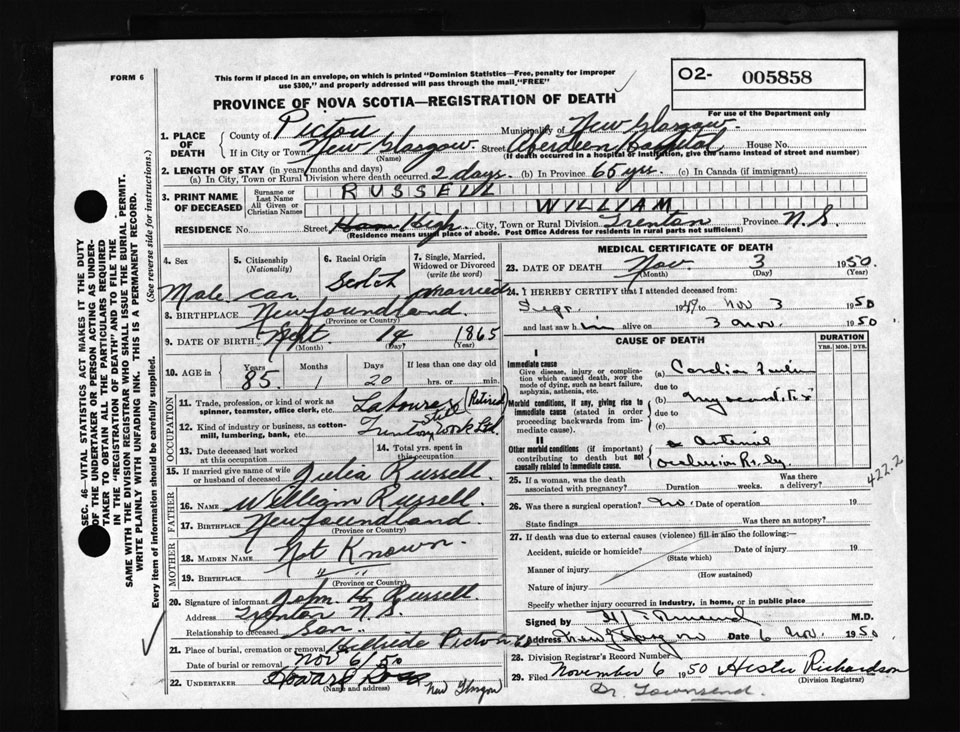 FORM 6
This form if placed in an envelope, on which is printed "Dominion Statistics—Free, penalty for improper
use $300," and properly addressed will pass through the mail "FREE"
O2- 005858
PROVINCE OF NOVA SCOTIA—REGISTRATION OF DEATH
For use of the Department only
1. PLACE OF DEATH
County of Pictou Municipality of New Glasgow
If in City or Town New Glasgow Street Aberdeen Hospital House No.
(Name) (If death occurred in a hospital or institution, give the name instead of street and number)
2. LENGTH OF STAY (in years, months and days)
(a) In City, Town or Rural Division where death occurred 2 days. (b) In Province 65 yrs. (c) In Canada (if immigrant)
3. PRINT NAME OF DECEASED
Surname or Last Name RUSSELL
All Given or Christian Names WILLIAM
RESIDENCE No. Street High City, Town or Rural Division Trenton Province N.S.
(Residence means usual place of abode. Post Office Address for residents in rural parts not sufficient)
4. Sex
Male
5. Citizenship (Nationality)
can
6. Racial Origin
Scotch
7. Single, Married, Widowed or Divorced (write the word)
married
8. BIRTHPLACE Newfoundland
(Province or Country)
9. DATE OF BIRTH Sept. 14 1865
(Month) (Day) (Year)
10. AGE in Years Months Days If less than one day old
85 1 20 hrs. or min.
OCCUPATION
11. Trade, profession, or kind of work as spinner, teamster, office clerk, etc. Labourer (Retired)
12. Kind of industry or business, as cotton-mill, lumbering, bank, etc. Trenton Steel Work Ltd.
13. Date deceased last worked at this occupation
14. Total yrs. spent in this occupation
15. If married give name of wife or husband of deceased Julia Russell
FATHER
16. Name William Russell.
17. Birthplace Newfoundland
(Province or Country)
MOTHER
18. Maiden Name Not Known.
19. Birthplace " "
(Province or Country)
20. Signature of informant John H. Russell.
Address Trenton N.S.
Relationship to deceased Son
21. Place of burial, cremation or removal Hillside Pictou Co
Date of burial or removal Nov 6/50
22. Undertaker Howard New Glasgow
(Name and address)
MEDICAL CERTIFICATE OF DEATH
23. DATE OF DEATH Nov. 3 1950.
(Month) (Day) (Year)
24. I HEREBY CERTIFY that I attended deceased from:
Sept. 1949 to Nov 3 1950
and last saw him alive on 3 Nov. 1950
CAUSE OF DEATH
DURATION
YRS. MOS. DYS.
I
Immediate cause
Give disease, injury or complication which caused death, not the mode of dying, such as heart failure, asphyxia, asthenia, etc.
(a) Cardiac Failure
due to
Morbid conditions, if any, giving rise to immediate cause (stated in order proceeding backwards from immediate cause).
(b) Myocarditis
due to
(c)
II
Other morbid conditions (if important) contributing to death but not causally related to immediate cause.
arterial
occlusion R. leg
422.2
25. If a woman, was the death associated with pregnancy? Duration weeks. Was there a delivery?
26. Was there a surgical operation? no. Date of operation 19
State findings Was there an autopsy?
27. If death was due to external causes (violence) fill in also the following:—
Accident, suicide or homicide? Date of injury 19
(State which)
Manner of injury
(How sustained)
Nature of injury
Specify whether injury occurred in industry, in home, or in public place
Signed by M.D.
Address New Glasgow Date 6 Nov. 1950
28. Division Registrar's Record Number
29. Filed November 6 1950 Hester Richardson
(Division Registrar)
Dr. Townsend.
SEC. 46—VITAL STATISTICS ACT MAKES IT THE DUTY
OF THE UNDERTAKER OR PERSON ACTING AS UNDER-
TAKER TO OBTAIN ALL THE PARTICULARS REQUIRED
IN THE "REGISTRATION OF DEATH" AND TO FILE THE
SAME WITH THE DIVISION REGISTRAR WHO SHALL ISSUE THE BURIAL PERMIT.
WRITE PLAINLY WITH UNFADING INK. THIS IS A PERMANENT RECORD.
Every item of information should be carefully supplied. (See reverse side for instructions.)